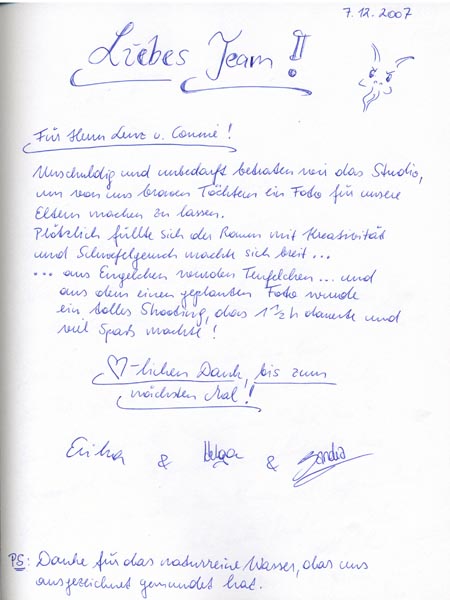 7.12.2007
Liebes Team!!
Für Herrn Lenz u. Connie!
Unschuldig und unbedarft betraten wir das Studio,
um von uns braven Töchtern ein Foto für unsere
Eltern machen zu lassen.
Plötzlich füllte sich der Raum mit Kreativität
und Schwefelgeruch machte sich breit...
... aus Engelchen wurden Teufelchen... und
aus dem einen geplanten Foto wurde
ein tolles Shooting, das 1 1/2 h dauerte und
viel Spaß machte!
♡-lichen Dank, bis zum
nächsten Mal!
Erika & Helga & Sandra
PS: Danke für das naturreine Wasser, das uns
ausgezeichnet gemundet hat.